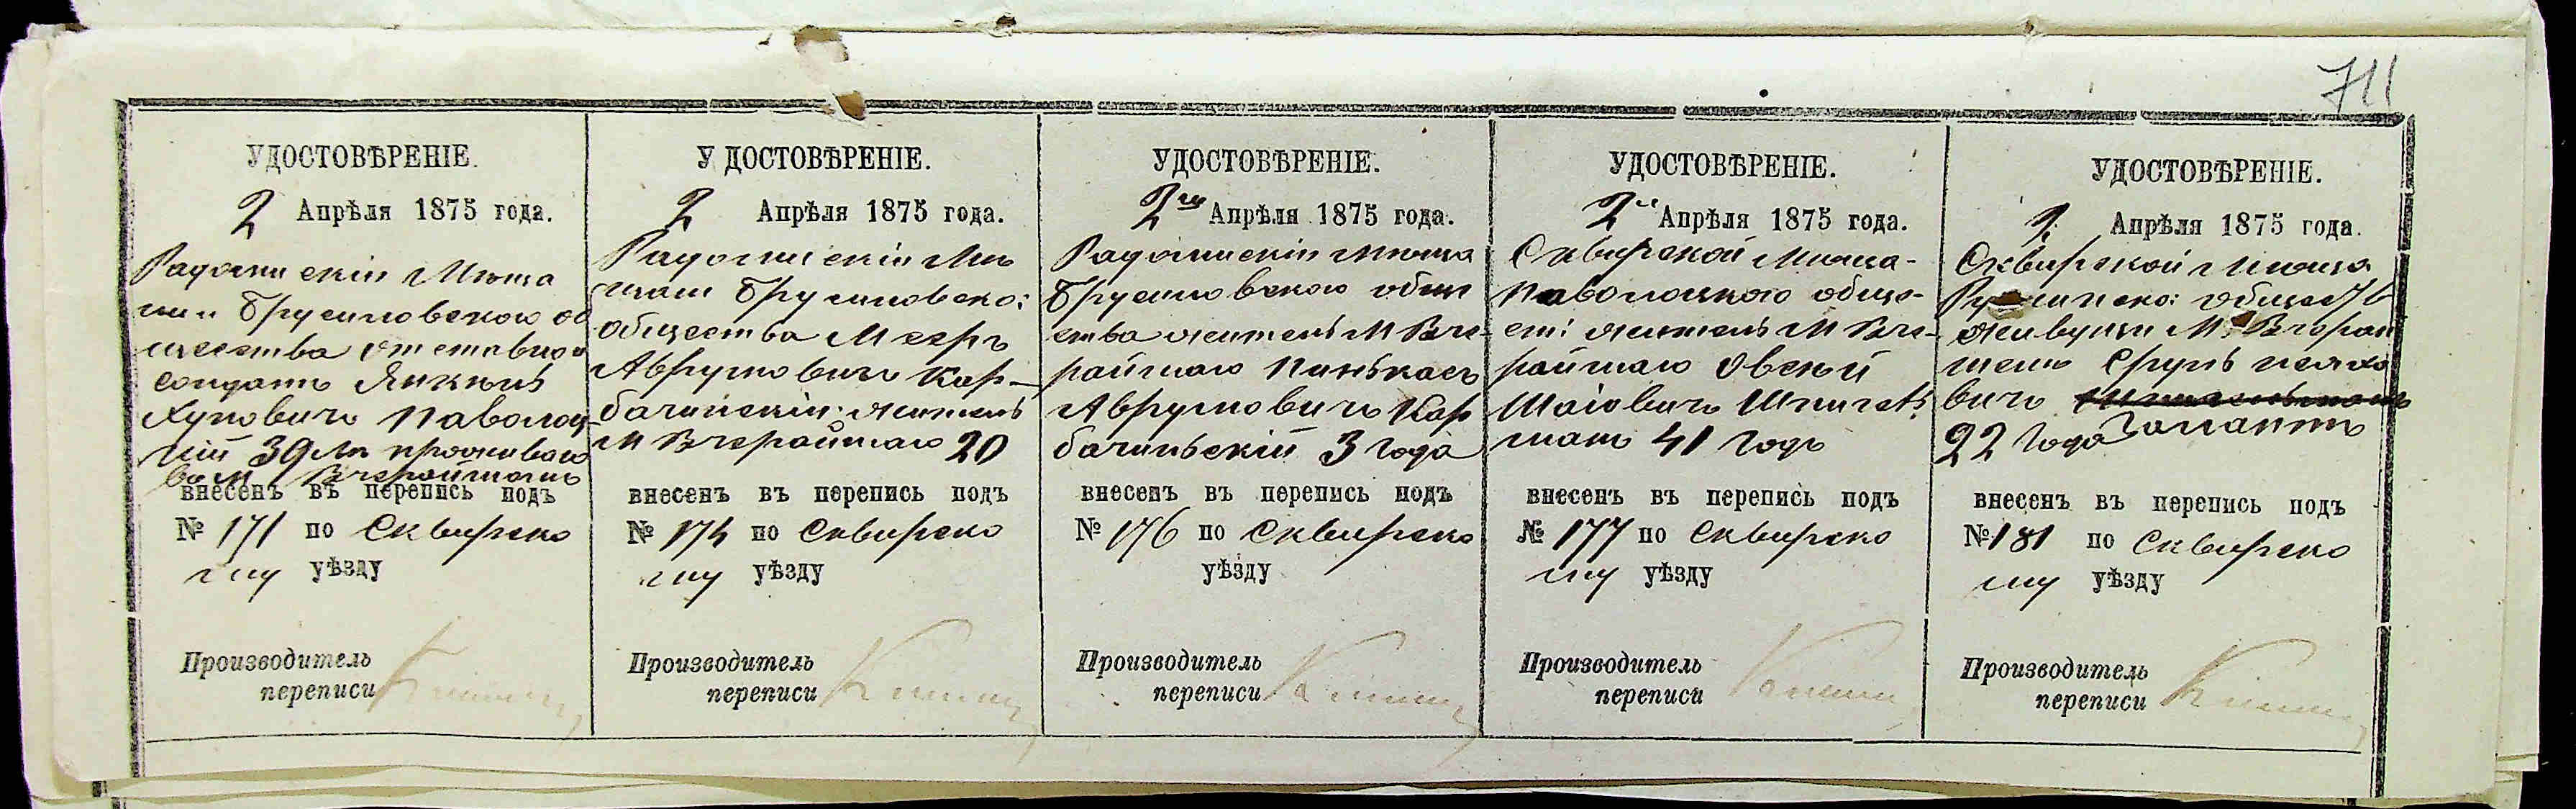 711
УДОСТОВѢРЕНІЕ.
2 Апрѣля 1875 года.
Радомискій Мѣща
нинъ Брусиловскаго об
щества отставной
солдатъ Янкель
Хуновичъ Паволоц
кій 39 лѣ проживаю
въ М Вчерайшомъ
внесенъ въ перепись подъ
№ 171 по Сквирско
му уѣзду
Производитель
переписи
УДОСТОВѢРЕНІЕ.
2 Апрѣля 1875 года.
Радомискій Мѣ
щан Брусиловско:
общества Мееръ
Аврумовичъ Кар-
бачинскій: житель
М Вчерайшаго 20
внесенъ въ перепись подъ
№ 174 по Сквирско
му уѣзду
Производитель
переписи
УДОСТОВѢРЕНІЕ.
2го Апрѣля 1875 года.
Радомискій мѣща
Брусиловскаго общ
ества житель М Вче-
райшаго Пинькасъ
Аврумовичъ Кар
бачиньскій 3 года
внесенъ въ перепись подъ
№ 176 по Сквирско
уѣзду
Производитель
переписи
УДОСТОВѢРЕНІЕ.
2 Апрѣля 1875 года.
Сквирской мѣща-
Паволоцкаго обще-
ст: житель М Вче-
райшаго Овсей
Шаіовичъ
41 годъ
внесенъ въ перепись подъ
№ 177 по Сквирско
му уѣзду
Производитель
переписи
УДОСТОВѢРЕНІЕ.
2 Апрѣля 1875 года.
Сквирской Мѣща
обществ
живущи М. Вчерай
шомъ Сруль
вичъ
22 года Галантъ
внесенъ въ перепись подъ
№ 181 по Сквирско
му уѣзду
Производитель
переписи